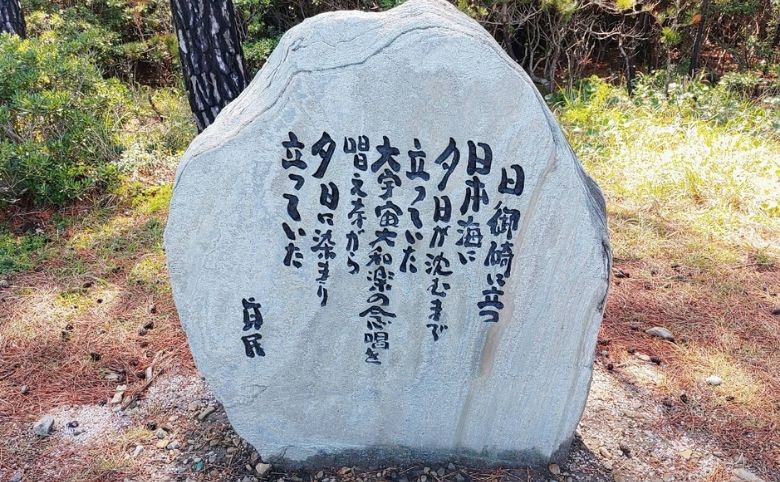 日御碕に立つ
日本海に
夕日が沈むまで
立っていた
大宇宙大和楽の念唱を
唱えながら
夕日に染まり
立っていた
真民